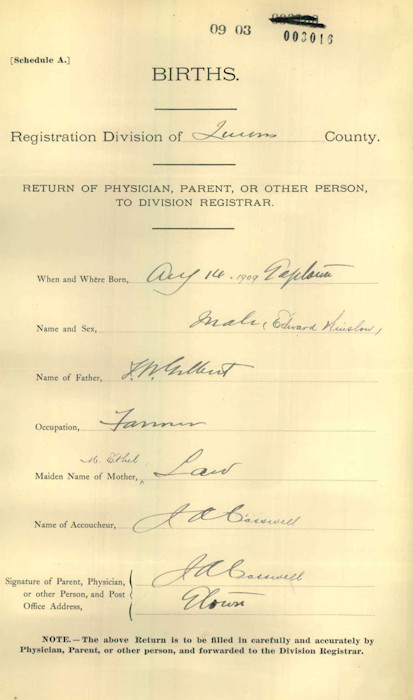 09 03
003016
[Schedule A.]
BIRTHS.
Registration Division of Queens County.
RETURN OF PHYSICIAN, PARENT, OR OTHER PERSON,
TO DIVISION REGISTRAR.
When and Where Born, Aug 14. 1909
Name and Sex, Male (Edward Winslow)
Name of Father, Gilbert
Occupation, Farmer
M. Ethel
Maiden Name of Mother, Law
Name of Accoucheur, J A Casswell
Signature of Parent, Physician, J A Casswell
or other Person, and Post
Office Address, Gtown
NOTE.—The above Return is to be filled in carefully and accurately by
Physician, Parent, or other person, and forwarded to the Division Registrar.